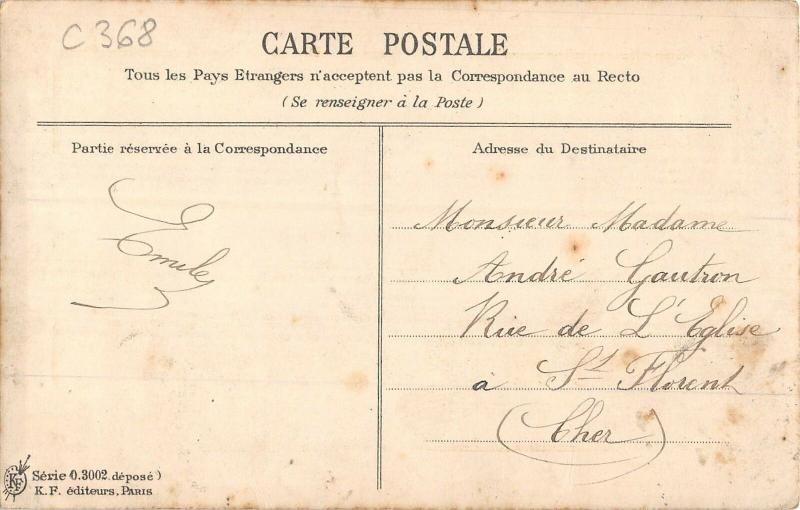 C 368
CARTE POSTALE
Tous les Pays Etrangers n'acceptent pas la Correspondance au Recto
(Se renseigner à la Poste)
Partie réservée à la Correspondance
Adresse du Destinataire
Emile
Monsieur Madame
André Gautron
Rue de L'Eglise
à St Florent
(Cher)
KF
Série (0.3002 déposé)
K.F. éditeurs, PARIS